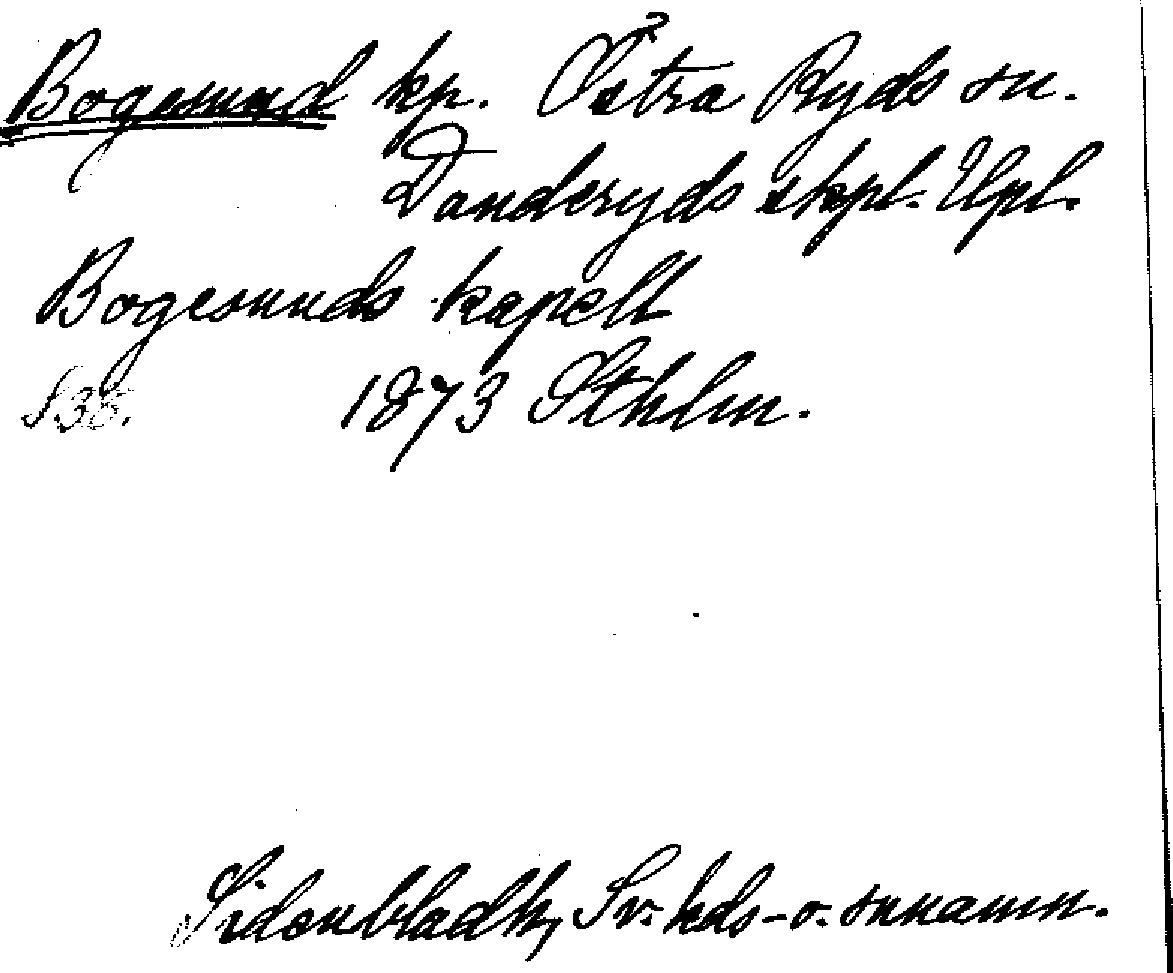 Bogesund kp. Östra Ryds sn.
Danderyds skpl. Upl.
Bogesunds kapell
S35. 1873 Sthlm.
Sidenbladh, Sv. hds- o. snnamn.